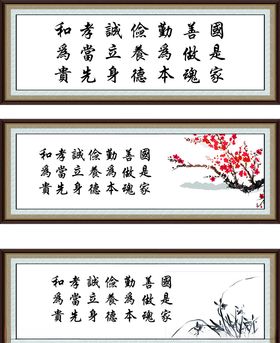 國是家
善做魂
勤為本
儉養德
誠立身
孝當先
和為貴
國是家
善做魂
勤為本
儉養德
誠立身
孝當先
和為貴
國是家
善做魂
勤為本
儉養德
誠立身
孝當先
和為貴